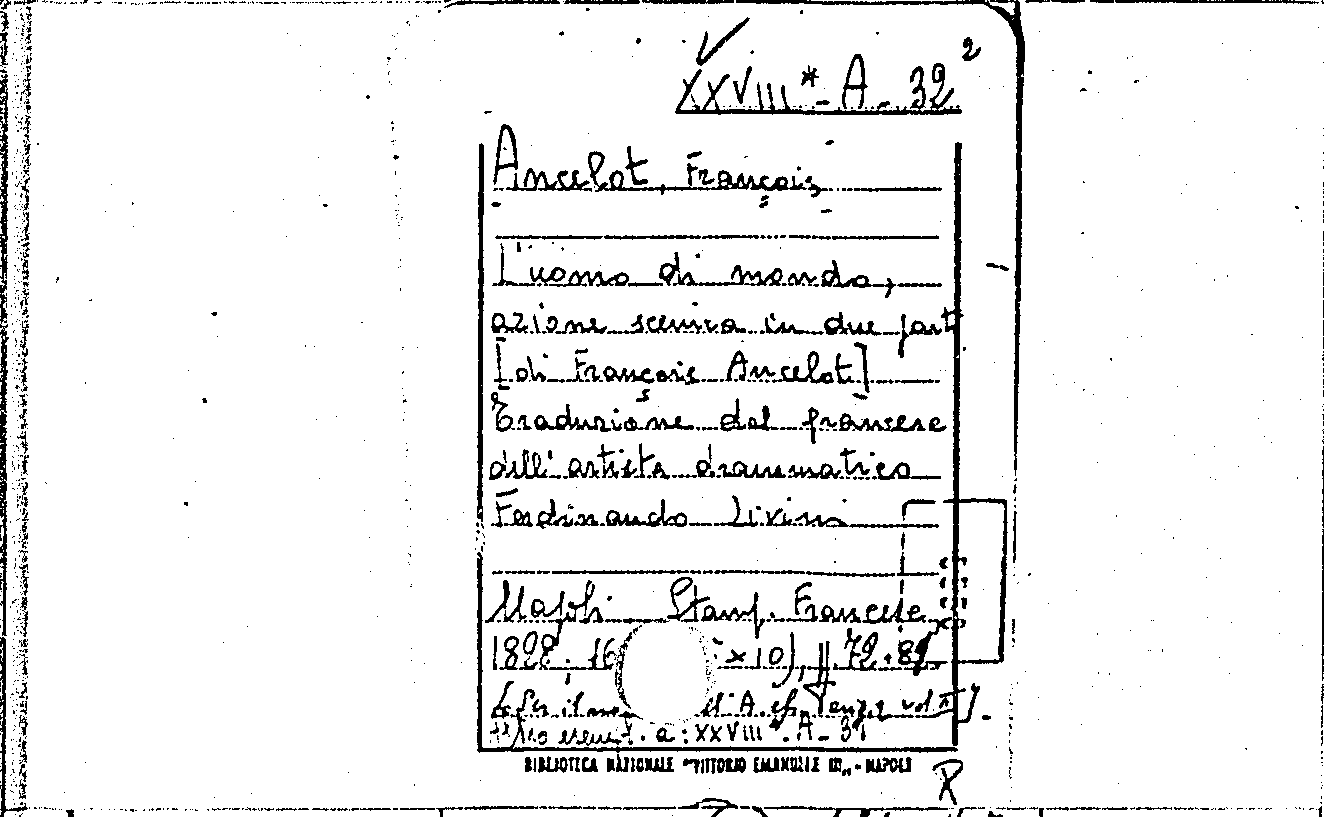 XXVIII*-A-32²
Ancelot, François
L'uomo di mondo,
azione scenica in due part
[di François Ancelot]
Traduzione dal francese
dell'artista drammatico
Ferdinando Livini
Napoli Stamp. Francese,
1828, 16 ×10), 72-82.
vol II].
altro esempl. a: XXVIII*-A-31
BIBLIOTECA NAZIONALE "VITTORIO EMANUELE III" - NAPOLI
R